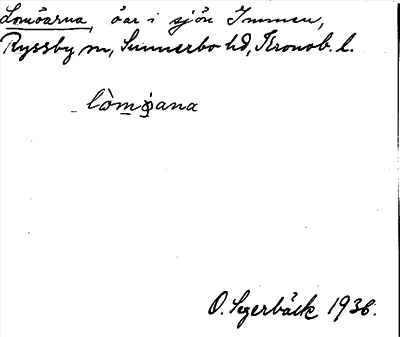 Lomöarna, öar i sjön Immen,
Ryssby sn, Sunnerbo hd, Kronob. l.
lòmǿana
O. Segerbäck 1936.